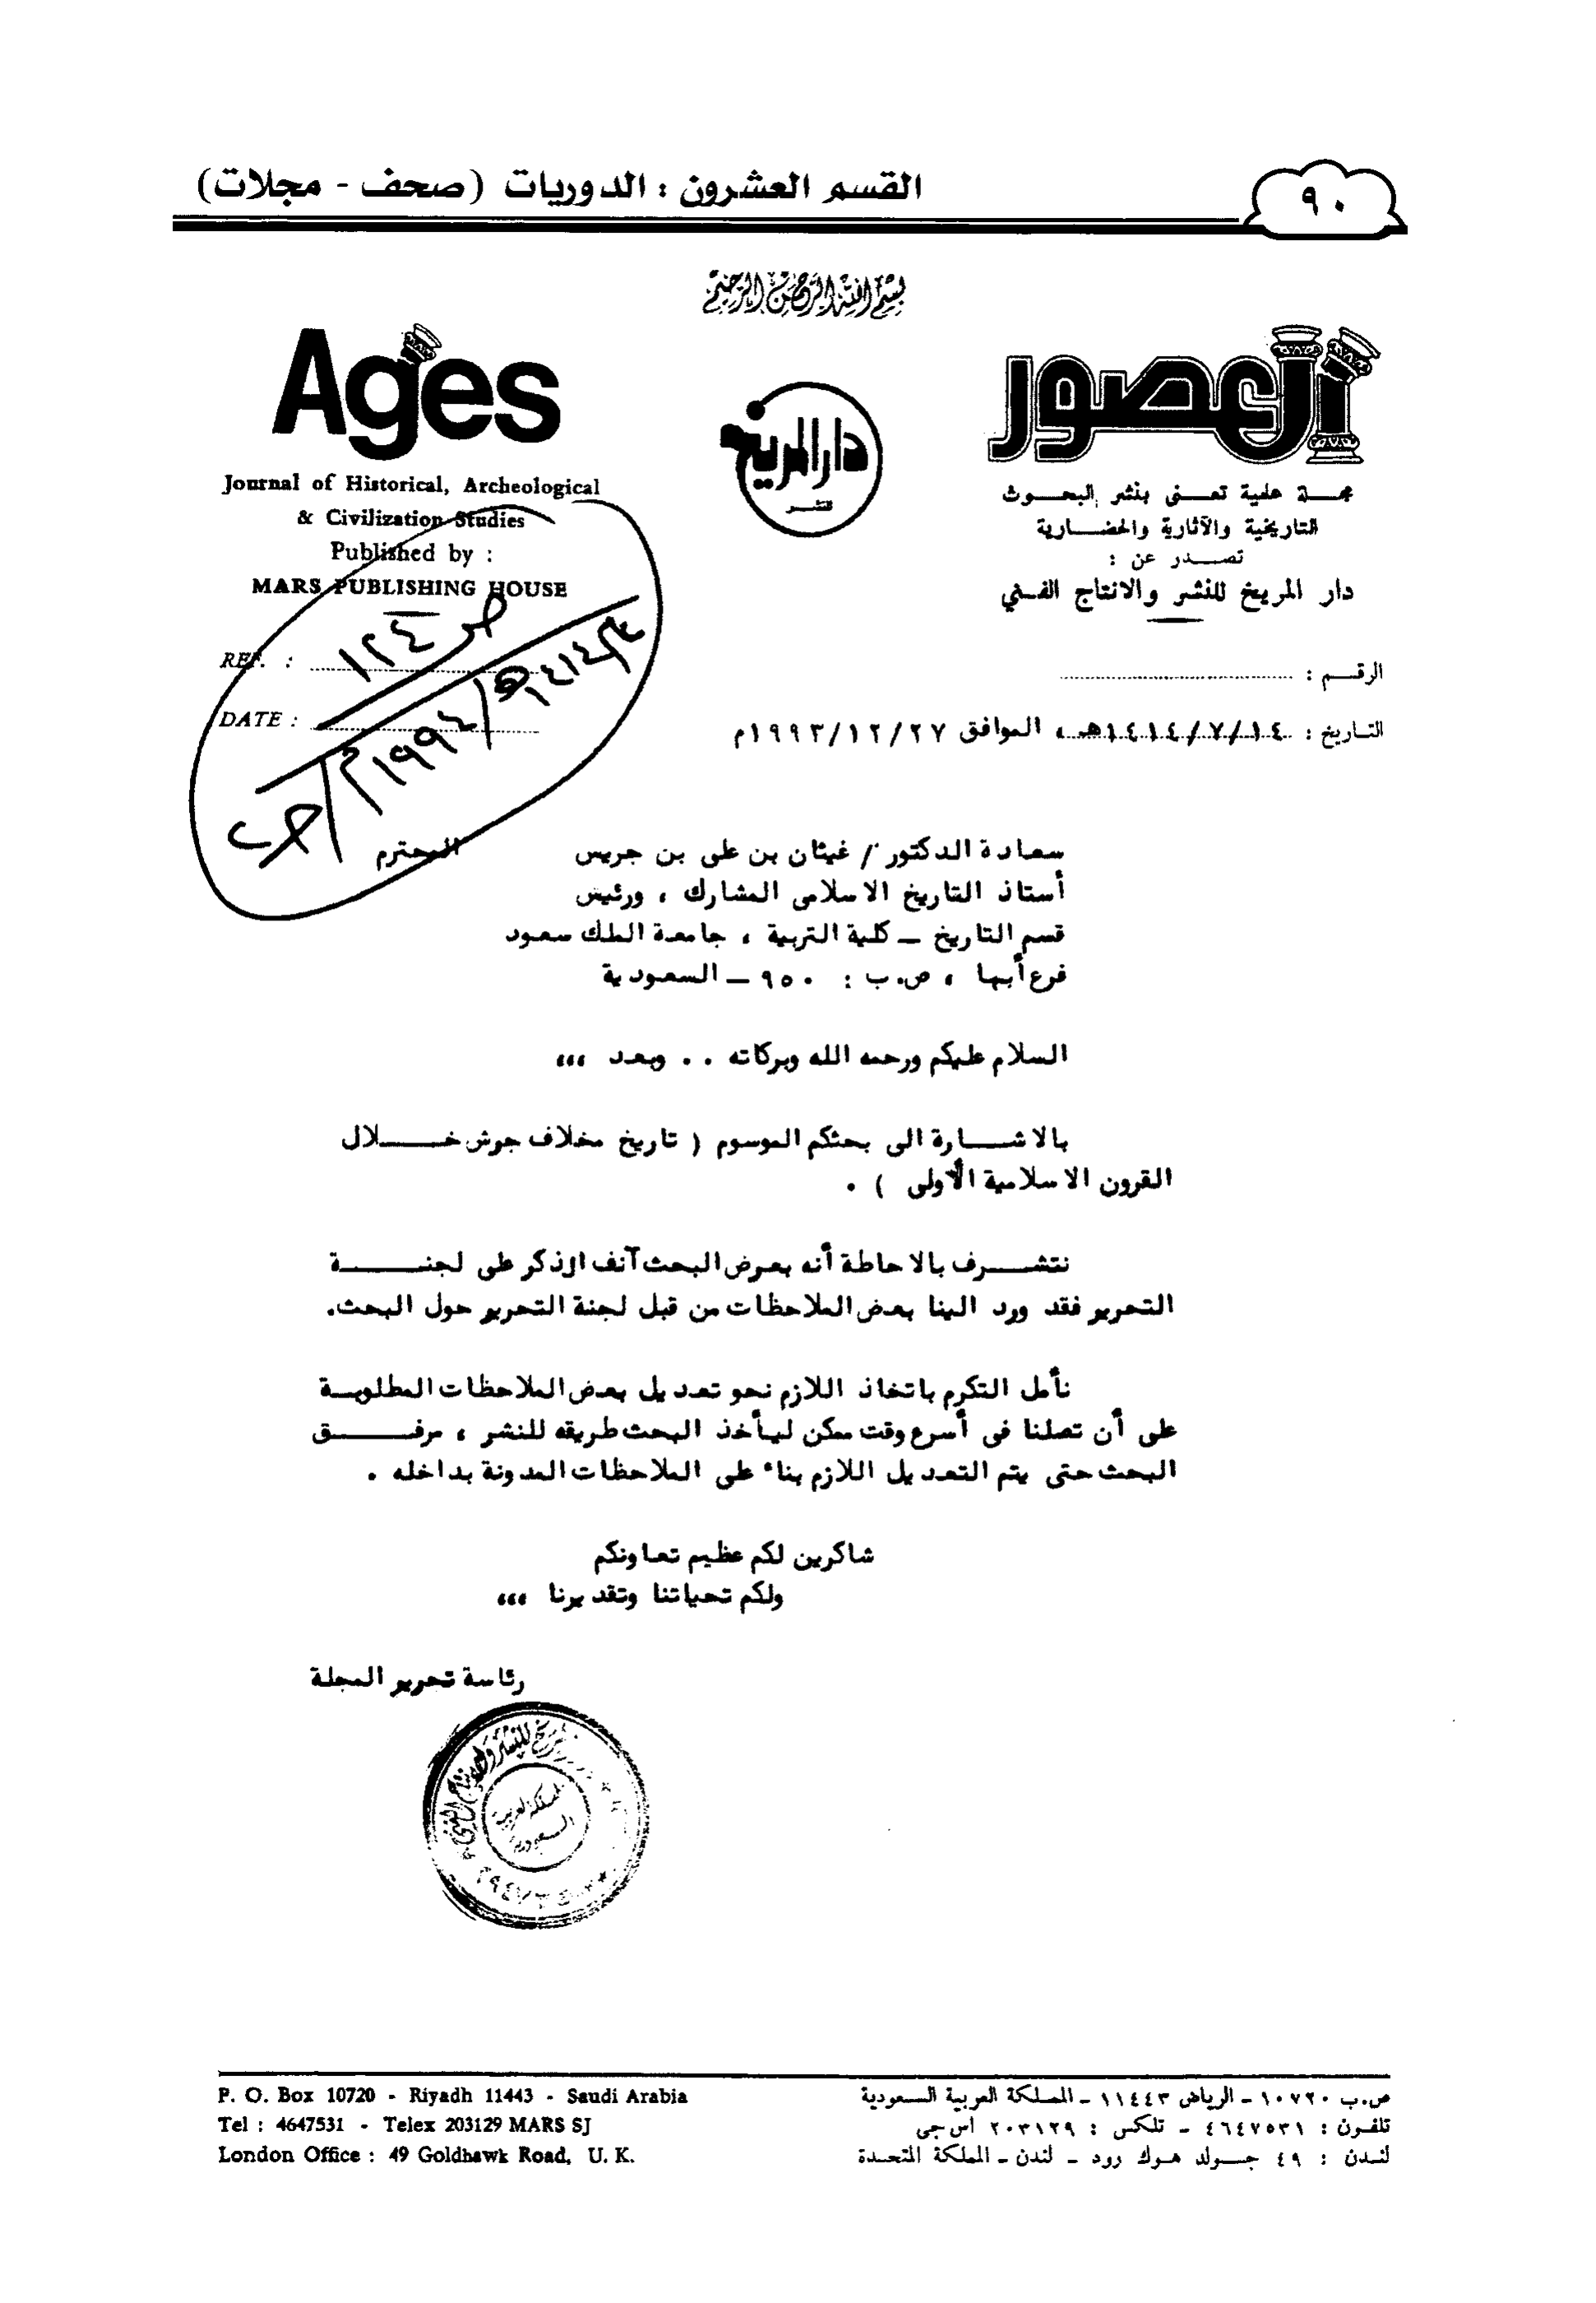 القسم العشرون : الدوريات (صحف - مجلات)
٩٠
بسم الله الرحمن الرحيم
Ages
Journal of Historical, Archeological
& Civilization Studies
Published by :
MARS PUBLISHING HOUSE
REF. :
DATE :
دار المريخ
للنشر
العصور
مجلة علمية تعنى بنشر البحوث
التاريخية والآثارية والحضارية
تصدر عن :
دار المريخ للنشر والانتاج الفني
الرقم :
التاريخ : ١٤١٤/٧/١٤هـ ، الموافق ١٩٩٣/١٢/٢٧م
ص ١٢٤
سعادة الدكتور / غيثان بن على بن جريس المحترم
أستاذ التاريخ الاسلامى المشارك ، ورئيس
قسم التاريخ ــ كلية التربية ، جامعة الملك سعود
فرع أبها ، ص.ب : ٩٥٠ ــ السعودية
السلام عليكم ورحمه الله وبركاته . . وبعد ،،،
بالاشارة الى بحثكم الموسوم ( تاريخ مخلاف جرش خلال
القرون الاسلامية الأولى ) .
نتشرف بالاحاطة أنه بعرض البحث آنف الذكر على لجنة
التحرير فقد ورد الينا بعض الملاحظات من قبل لجنة التحرير حول البحث.
نأمل التكرم باتخاذ اللازم نحو تعديل بعض الملاحظات المطلوبة
على أن تصلنا فى أسرع وقت ممكن ليأخذ البحث طريقه للنشر ، مرفق
البحث حتى يتم التعديل اللازم بناء على الملاحظات المدونة بداخله .
شاكرين لكم عظيم تعاونكم
ولكم تحياتنا وتقديرنا ،،،
رئاسة تحرير المجلة
المملكة العربية
السعودية
P. O. Box 10720 - Riyadh 11443 - Saudi Arabia
Tel : 4647531 - Telex 203129 MARS SJ
London Office : 49 Goldhawk Road, U. K.
ص.ب ١٠٧٢٠ ـ الرياض ١١٤٤٣ ـ المملكة العربية السعودية
تلفـون : ٤٦٤٧٥٣١ ـ تلكس : ٢٠٣١٢٩ اس جى
لندن : ٤٩ جولد هوك رود ـ لندن ـ المملكة المتحدة